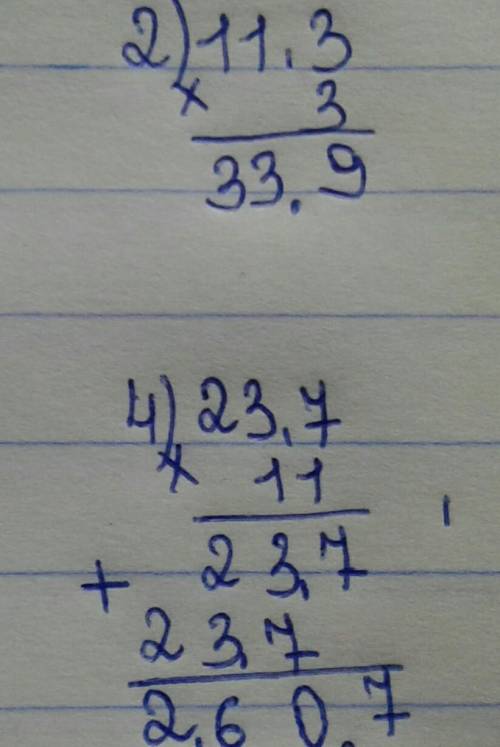 2) 11.3
× 3
33.9
4) 23.7
× 11
23.7
+ 23.7
2.60.7